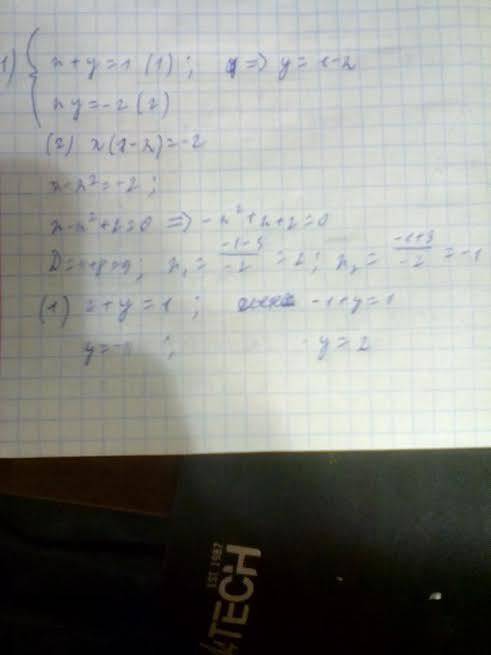 1) { x+y=1 (1) ; => y=1-x
xy=-2 (2)
(2) x(1-x)=-2
x-x²=-2 ;
x-x²+2=0 => -x²+x+2=0
D=1+8=9; x₁ = -1-3/-2 = 2; x₂ = -1+3/-2 = -1
(1) 2+y=1 ; -1+y=1
y=-1 ; y=2
EST 1987
4TECH